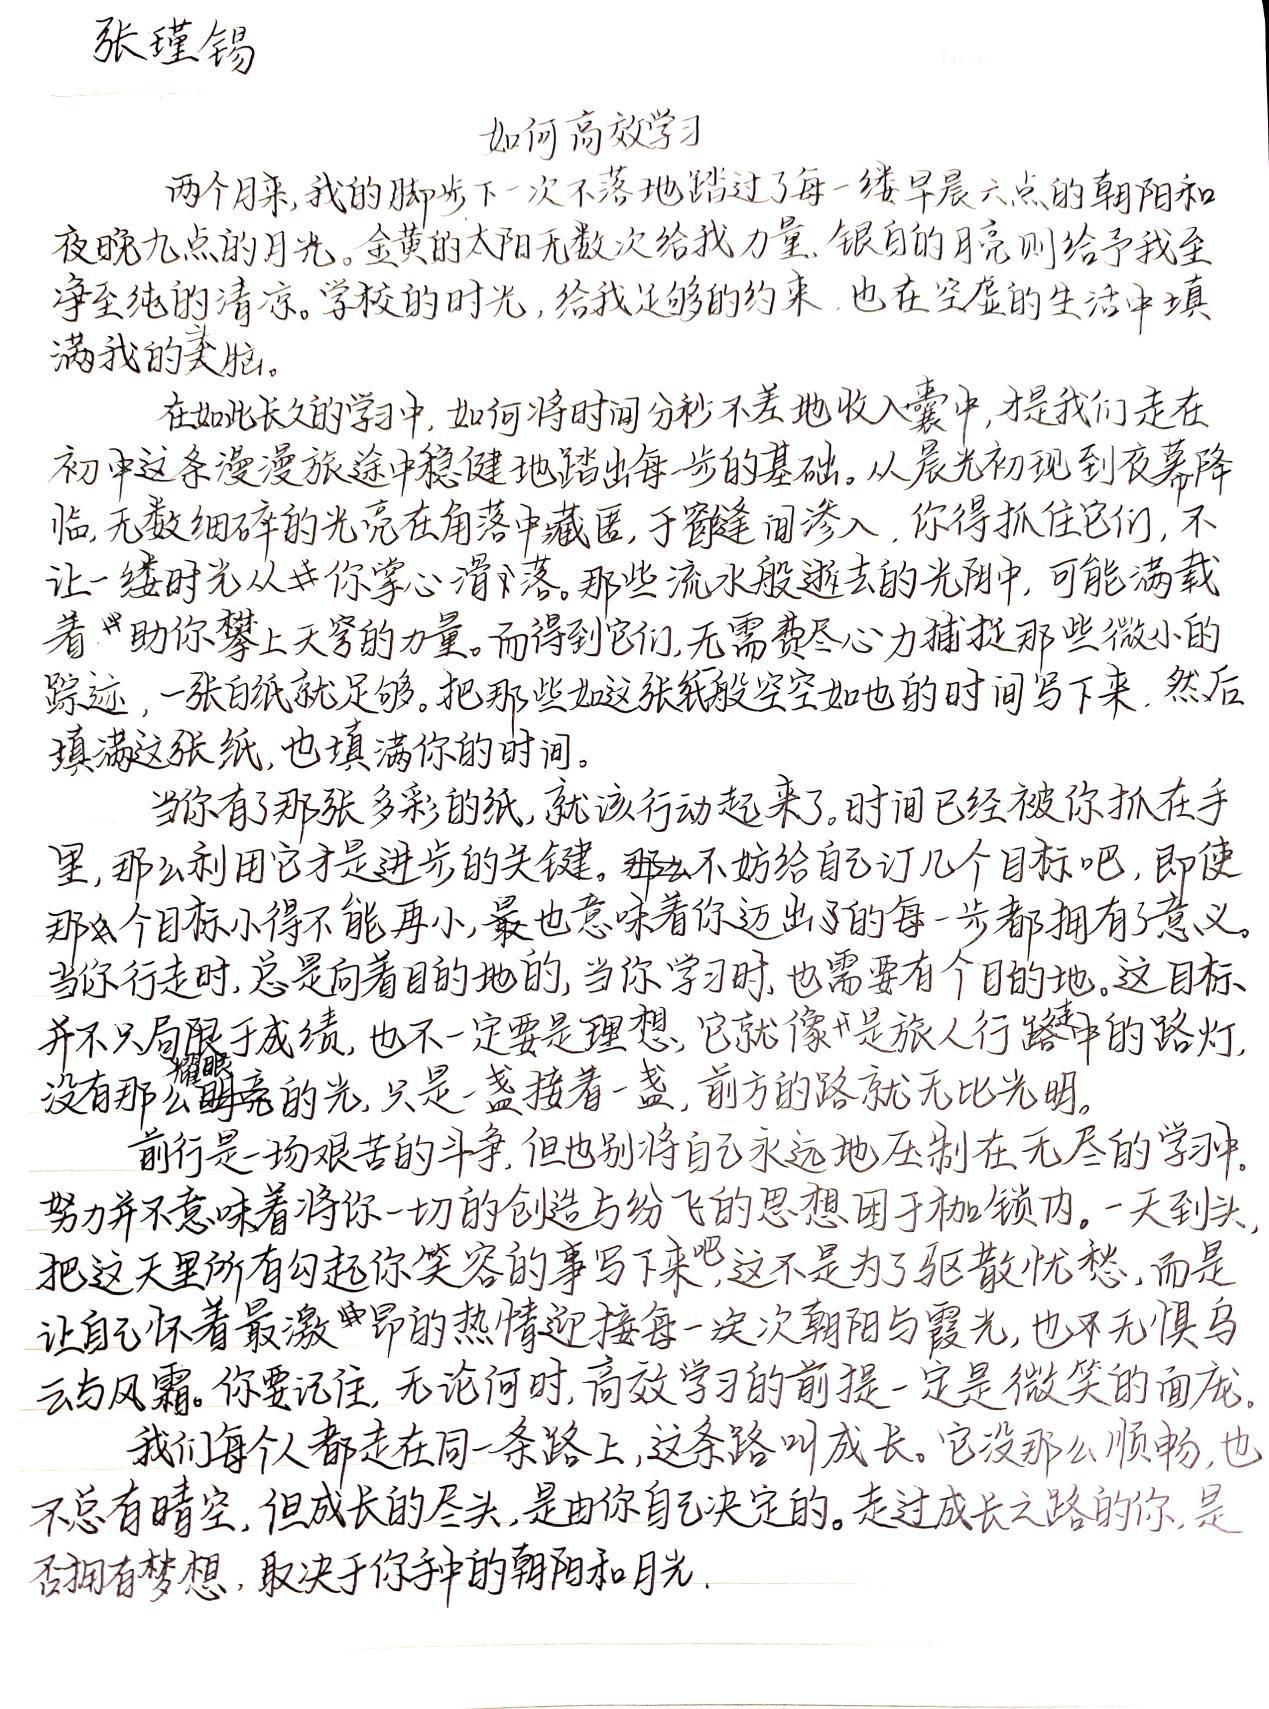 张瑾锡
如何高效学习
两个月来,我的脚步下一次不落地踏过了每一缕早晨六点的朝阳和
夜晚九点的月光。金黄的太阳无数次给我力量,银白的月亮则给予我至
净至纯的清凉。学校的时光,给我足够的约束,也在空虚的生活中填
满我的头脑。
在如此长久的学习中,如何将时间分秒不差地收入囊中,才是我们走在
初中这条漫漫旅途中稳健地踏出每一步的基础。从晨光初现到夜幕降
临,无数细碎的光亮在角落中藏匿,于窗缝间渗入,你得抓住它们,不
让一缕时光从你掌心滑落。那些流水般逝去的光阴中,可能满载
着助你攀上天穹的力量。而得到它们,无需费尽心力捕捉那些微小的
踪迹,一张白纸就足够。把那些如这张纸般空空如也的时间写下来,然后
填满这张纸,也填满你的时间。
当你有了那张多彩的纸,就该行动起来了。时间已经被你抓在手
里,那么利用它才是进步的关键。不妨给自己订几个目标吧,即使
那个目标小得不能再小,也意味着你迈出的每一步都拥有了意义。
当你行走时,总是向着目的地的,当你学习时,也需要有个目的地。这目标
并不只局限于成绩,也不一定要是理想,它就像是旅人行走中的路灯,
没有那么耀眼的光,只是一盏接着一盏,前方的路就无比光明。
前行是一场艰苦的斗争,但也别将自己永远地压制在无尽的学习中。
努力并不意味着将你一切的创造与纷飞的思想困于枷锁内。一天到头,
把这天里所有勾起你笑容的事写下来吧,这不是为了驱散忧愁,而是
让自己怀着最激昂的热情迎接每一次次朝阳与霞光,也不无惧乌
云与风霜。你要记住,无论何时,高效学习的前提一定是微笑的面庞。
我们每个人都走在同一条路上,这条路叫成长。它没那么顺畅,也
不总有晴空,但成长的尽头,是由你自己决定的。走过成长之路的你,是
否拥有梦想,取决于你手中的朝阳和月光.